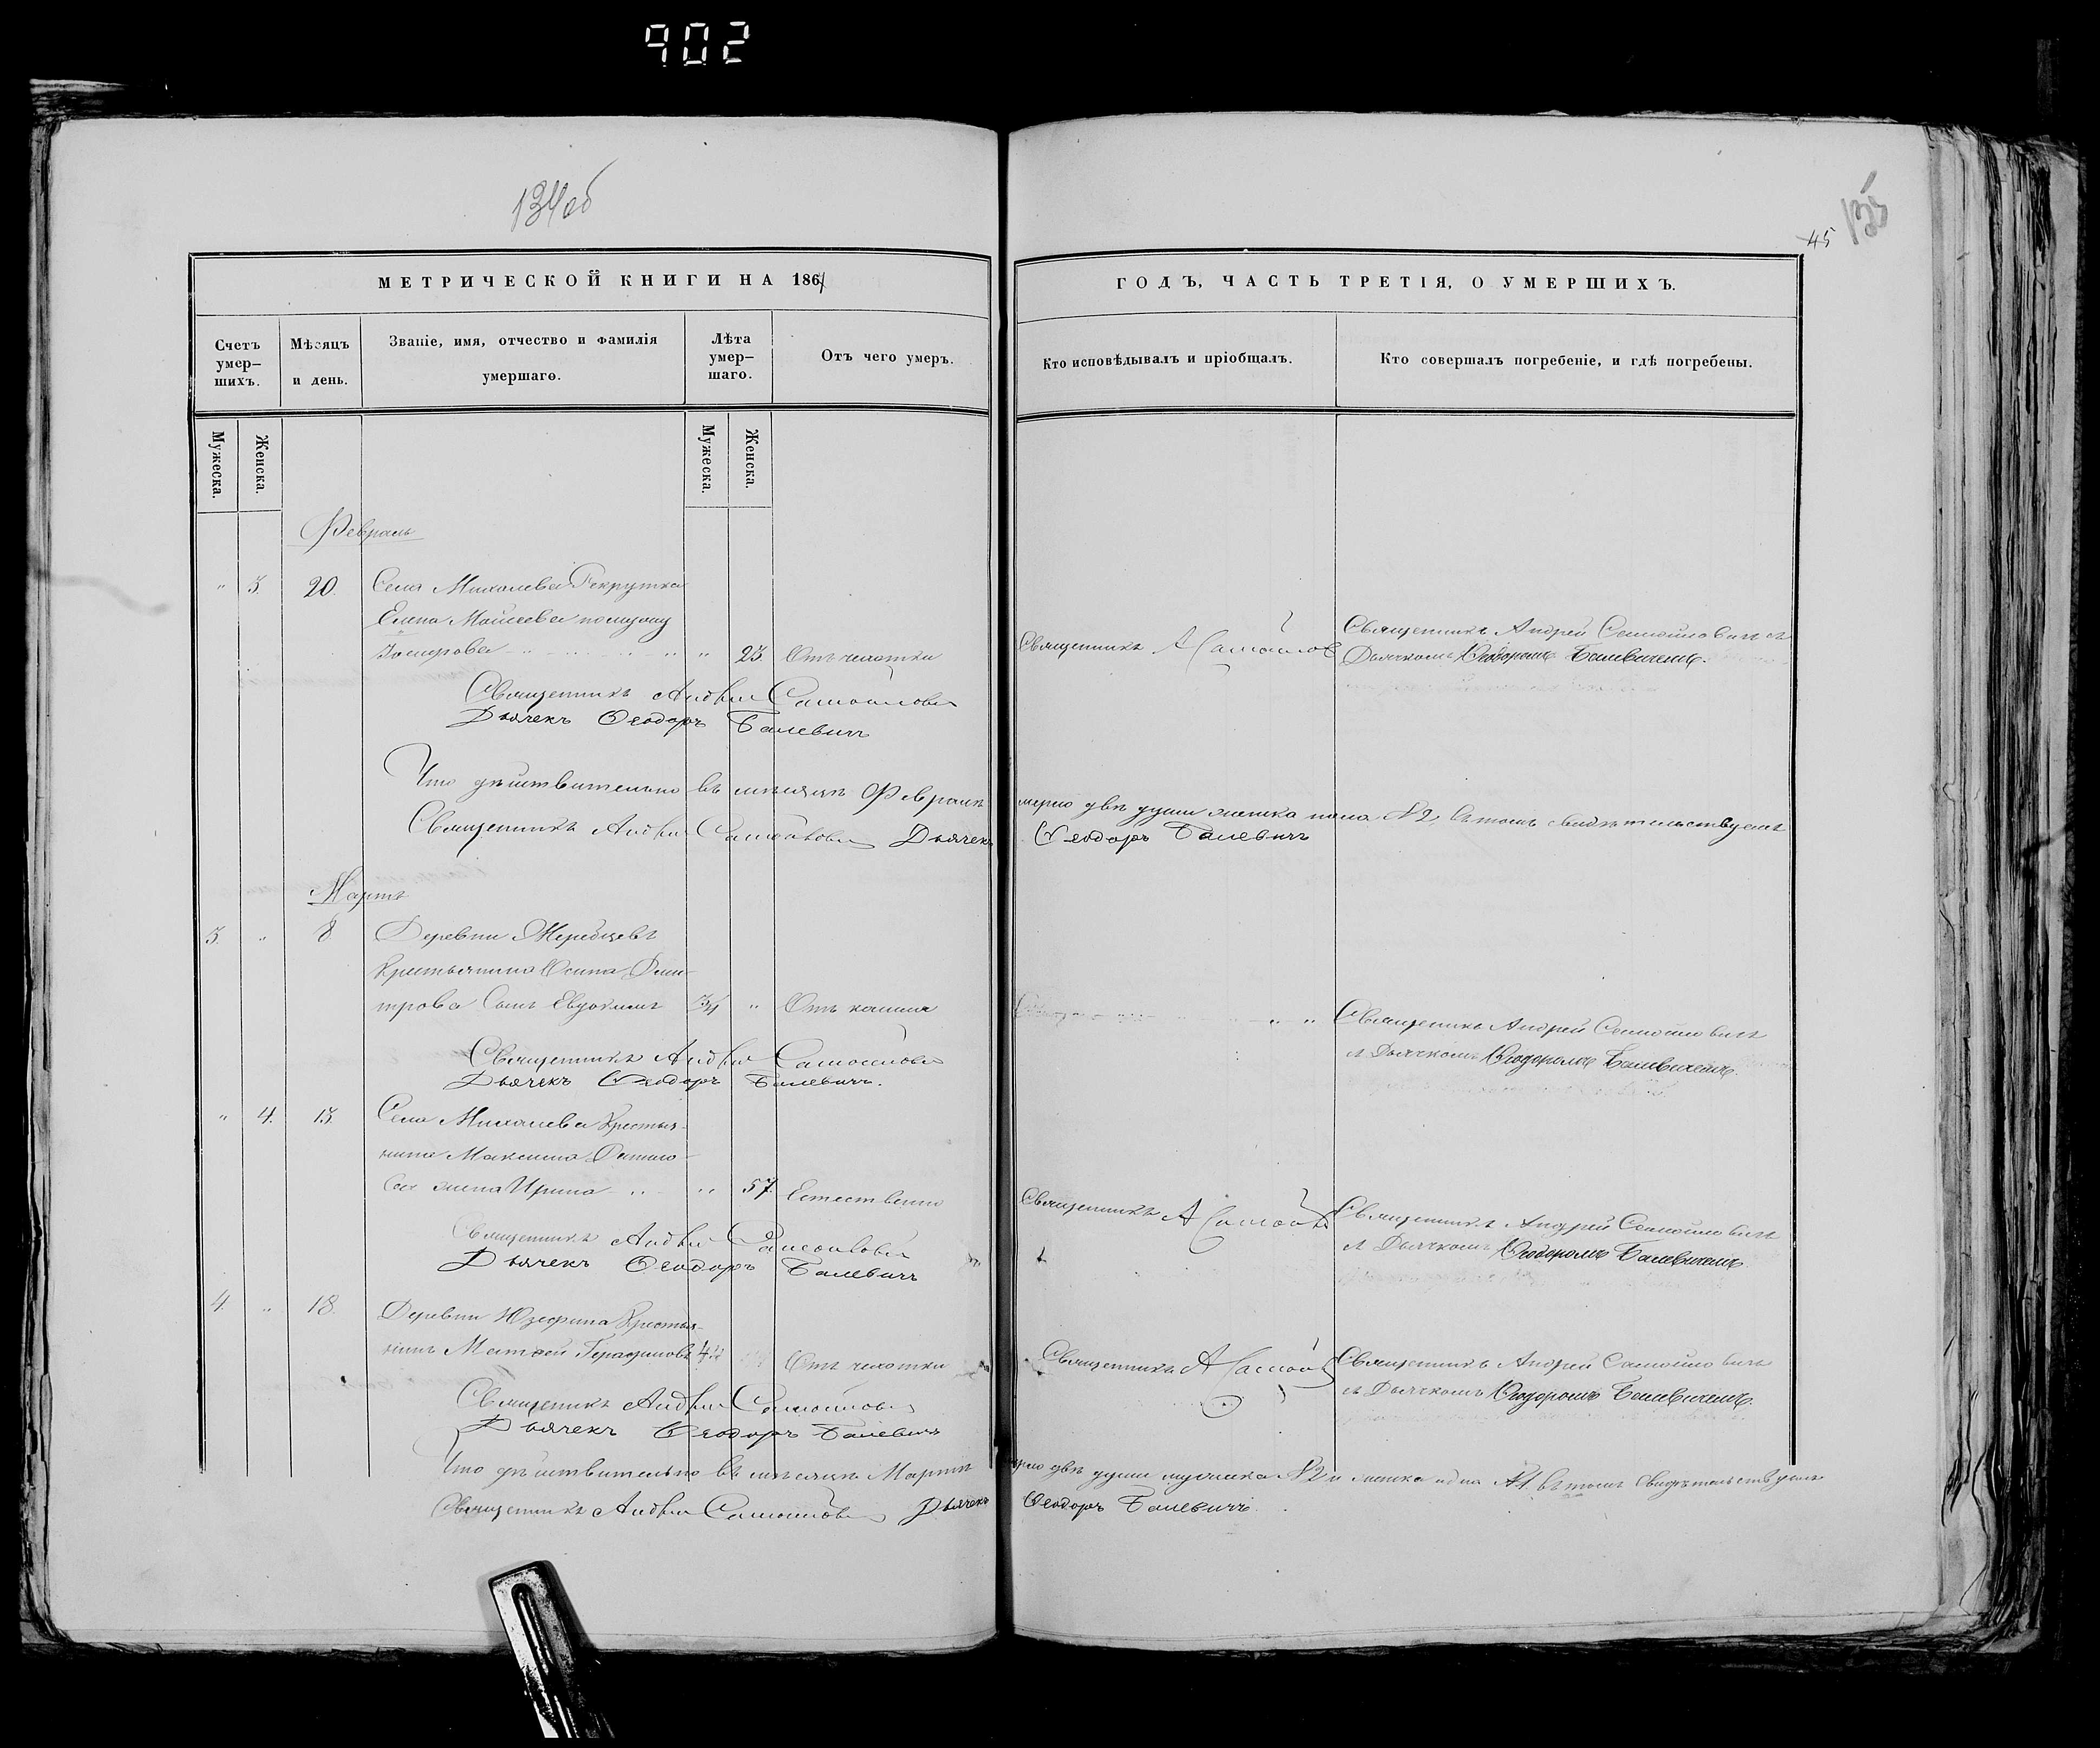 902
134об
135
45
МЕТРИЧЕСКОЙ КНИГИ НА 1864
ГОДЪ, ЧАСТЬ ТРЕТІЯ, О УМЕРШИХЪ.
Счетъ умер–шихъ.
Мѣсяцъ и день.
Званіе, имя, отчество и фамилія умершаго.
Лѣта умер–шаго.
Отъ чего умеръ.
Кто исповѣдывалъ и пріобщалъ.
Кто совершалъ погребеніе, и гдѣ погребены.
Мужеска.
Женска.
Мужеска.
Женска.
Февраль
" 3. 20. Села Михалева Рекрутка
Елена Моисеева по мужу
" 23. Отъ чахотки
Священникъ А Самойлов
Священникъ Андрей Самойловичъ съ
Дьячкомъ Ѳеодоромъ Балевичемъ.
Священникъ Андрей Самойлович
Дьячекъ Ѳеодоръ Балевичъ
Что дѣйствительно въ мѣсяцѣ Февралѣ умерло двѣ души женска пола №2 въ томъ свидѣтельствуемъ
Священникъ Андрей Самойлович Дьячекъ Ѳеодоръ Балевичъ
Мартъ
3. " 8 Деревни Жеребцевъ
Крестьянина Осипа Дми–
трова Сынъ Евдокимъ 3/4 " Отъ кашля
" "
Священникъ Андрей Самойловичъ
съ Дьячкомъ Ѳеодоромъ Балевичемъ.
Священникъ Андрей Самойлович
Дьячекъ Ѳеодоръ Балевичъ.
" 4. 13. Села Михалева Крестья–
нина Максима Данило–
ва жена Ирина " " 57 Естественно
Священникъ А Самойлов
Священникъ Андрей Самойловичъ
съ Дьячкомъ Ѳеодоромъ Балевичемъ
Священникъ Андрей Самойлович
Дьячекъ Ѳеодоръ Балевичъ
4. " 18. Деревни Юзефина Крестья–
нинъ Матвей Отъ чахотки
Священникъ А Самойлов
Священникъ Андрей Самойловичъ
съ Дьячкомъ Ѳеодоромъ Балевичемъ.
Священникъ Андрей Самойлович
Дьячекъ Ѳеодоръ Балевичъ
Что дѣйствительно въ мѣсяцѣ Мартѣ умерло двѣ души мужеска №2 и женска одна №1 въ томъ свидѣтельствуемъ
Священникъ Андрей Самойлович Дьячекъ Ѳеодоръ Балевичъ.